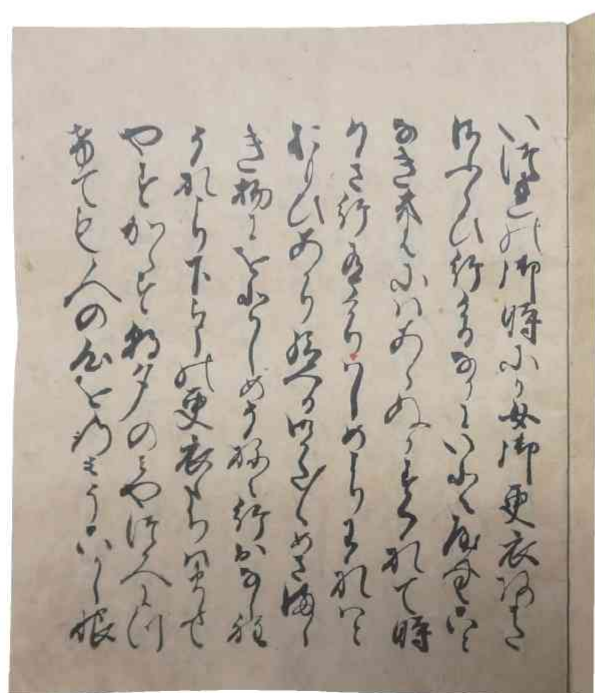 いつれの御時にか女御更衣あまた
さふらひ給けるなかにいとやむこと
なききはにはあらぬかすくれて時
めき給ありけりはしめよりわれはと
おもひあかり給へる御かた〱めさまし
き物にをとしめそねみ給おなし程
それより下らうの更衣たちはまして
やすからす朝夕のみやつかへにつ
けても人の心をのみうこかし恨